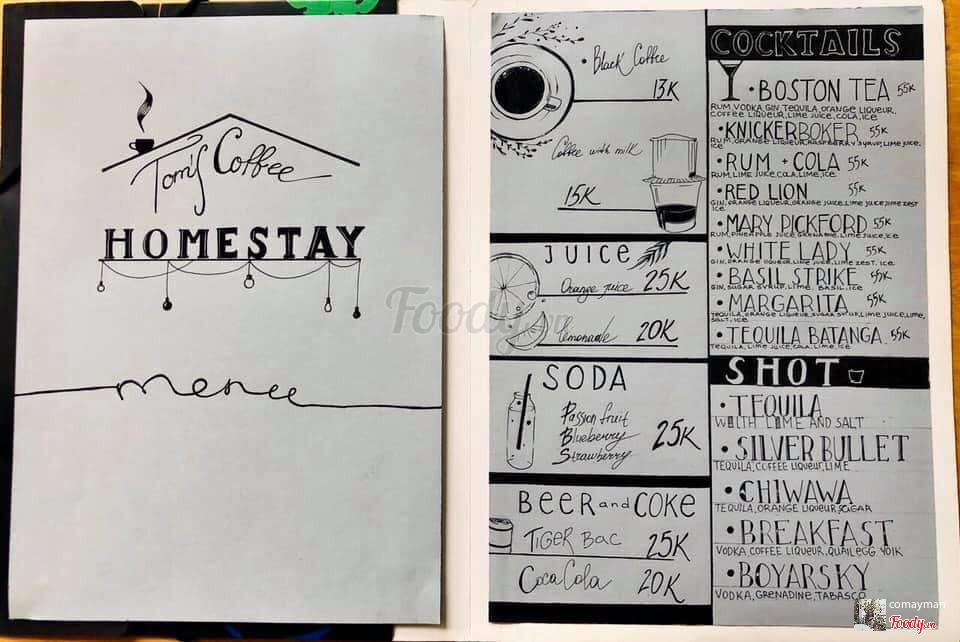 Tom's Coffee
HOMESTAY
menu
• Black Coffee
13K
Coffee with milk
15K
JUICE
Orange juice 25K
lemonade 20K
SODA
Passion fruit
Blueberry 25K
Strawberry
BEER and COKE
TiGER BAC 25K
Coca Cola 20K
COCKTAILS
• BOSTON TEA 55K
RUM, VODKA, GIN, TEQUILA, ORANGE LIQUEUR,
COFFEE LIQUEUR, LIME JUICE, COLA, ICE
• KNICKERBOKER 55K
RUM, ORANGE LIQUEUR, RASPBERRY SYRUP, LIME JUICE,
ICE
• RUM + COLA 55K
RUM, LIME JUICE, COLA, LIME, ICE
• RED LION 55K
GIN, ORANGE LIQUEUR, ORANGE JUICE, LIME JUICE, LIME ZEST
ICE
• MARY PICKFORD 55K
RUM, PINEAPPLE JUICE, LIME JUICE, ICE
• WHITE LADY 55K
GIN, ORANGE LIQUEUR, LIME JUICE, LIME ZEST, ICE
• BASIL STRIKE 55K
GIN, SUGAR SYRUP, LIME, BASIL, ICE
• MARGARITA 55K
TEQUILA, ORANGE LIQUEUR, SUGAR SYRUP, LIME JUICE, LIME,
SALT, ICE
• TEQUILA BATANGA 55K
TEQUILA, LIME JUICE, COLA, LIME, ICE
SHOT
• TEQUILA
WITH LIME AND SALT
• SILVER BULLET
TEQUILA, COFFEE LIQUEUR, LIME
• CHIWAWA
TEQUILA, ORANGE LIQUEUR, SUGAR
• BREAKFAST
VODKA, COFFEE LIQUEUR, QUAIL EGG YOLK
• BOYARSKY
VODKA, GRENADINE, TABASCO
Foody.vn
comayman
Foody.vn